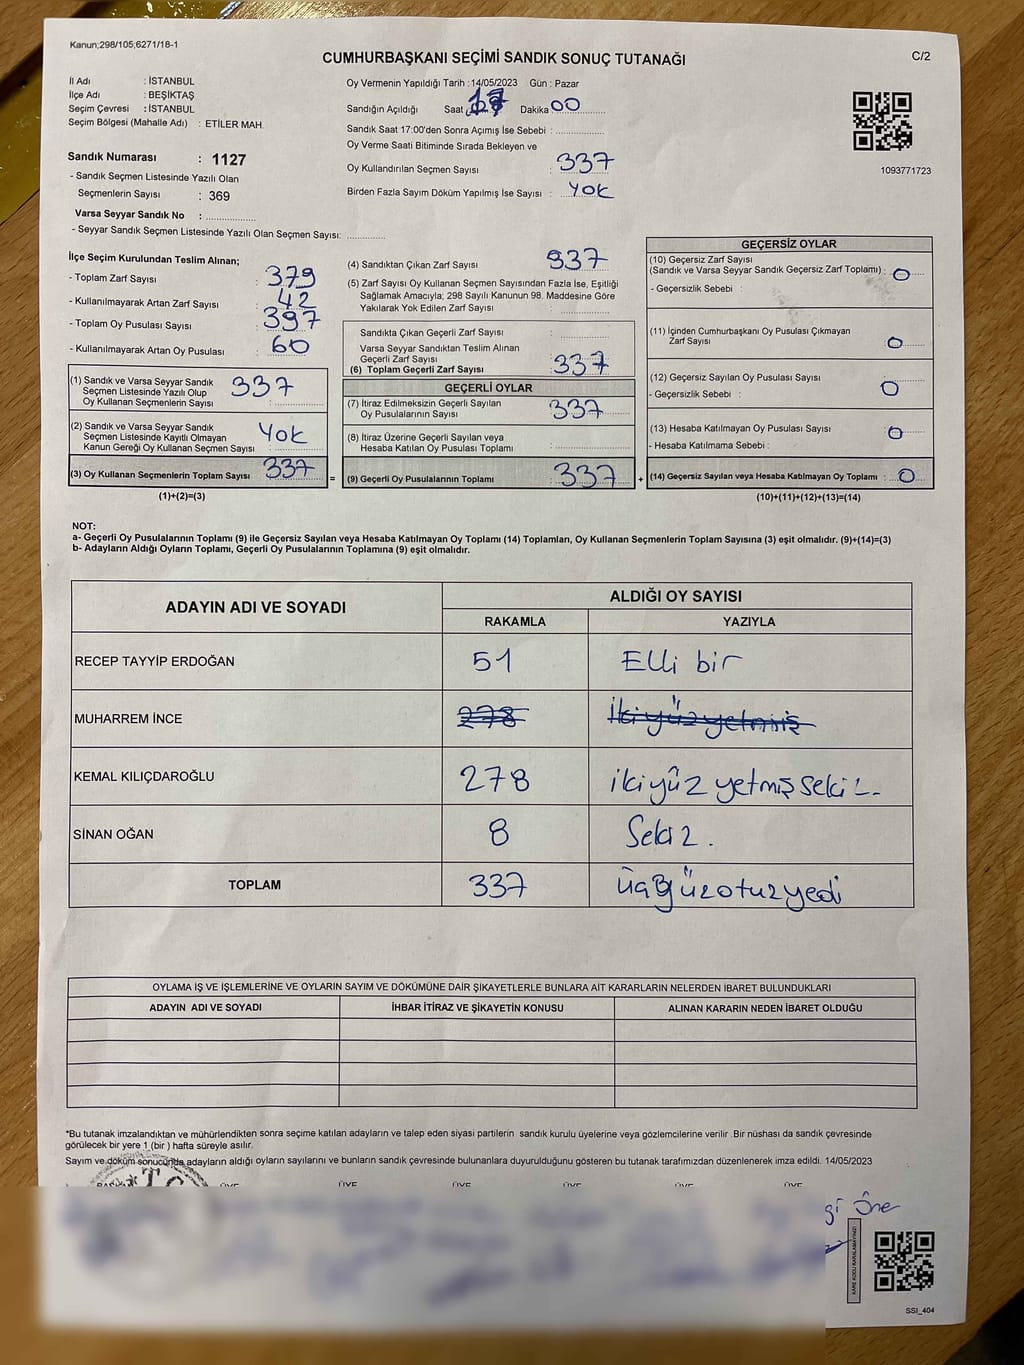 Kanun;298/105;6271/18-1
CUMHURBAŞKANI SEÇİMİ SANDIK SONUÇ TUTANAĞI
C/2
İl Adı : İSTANBUL
İlçe Adı : BEŞİKTAŞ
Seçim Çevresi : İSTANBUL
Seçim Bölgesi (Mahalle Adı) : ETİLER MAH.
Sandık Numarası : 1127
- Sandık Seçmen Listesinde Yazılı Olan
Seçmenlerin Sayısı : 369
Varsa Seyyar Sandık No :
- Seyyar Sandık Seçmen Listesinde Yazılı Olan Seçmen Sayısı:
Oy Vermenin Yapıldığı Tarih :14/05/2023 Gün : Pazar
Sandığın Açıldığı Saat Dakika 00
Sandık Saat 17:00'den Sonra Açımış İse Sebebi :
Oy Verme Saati Bitiminde Sırada Bekleyen ve
Oy Kullandırılan Seçmen Sayısı : 337
Birden Fazla Sayım Döküm Yapılmış İse Sayısı : YOK
1093771723
İlçe Seçim Kurulundan Teslim Alınan;
- Toplam Zarf Sayısı : 379
- Kullanılmayarak Artan Zarf Sayısı : 42
- Toplam Oy Pusulası Sayısı : 397
- Kullanılmayarak Artan Oy Pusulası : 60
(1) Sandık ve Varsa Seyyar Sandık
Seçmen Listesinde Yazılı Olup
Oy Kullanan Seçmenlerin Sayısı : 337
(2) Sandık ve Varsa Seyyar Sandık
Seçmen Listesinde Kayıtlı Olmayan
Kanun Gereği Oy Kullanan Seçmen Sayısı : YOK
(3) Oy Kullanan Seçmenlerin Toplam Sayısı : 337
(1)+(2)=(3)
(4) Sandıktan Çıkan Zarf Sayısı : 337
(5) Zarf Sayısı Oy Kullanan Seçmen Sayısından Fazla İse, Eşitliği
Sağlamak Amacıyla; 298 Sayılı Kanunun 98. Maddesine Göre
Yakılarak Yok Edilen Zarf Sayısı :
Sandıkta Çıkan Geçerli Zarf Sayısı :
Varsa Seyyar Sandıktan Teslim Alınan
Geçerli Zarf Sayısı :
(6) Toplam Geçerli Zarf Sayısı : 337
GEÇERLİ OYLAR
(7) İtiraz Edilmeksizin Geçerli Sayılan
Oy Pusulalarının Sayısı : 337
(8) İtiraz Üzerine Geçerli Sayılan veya
Hesaba Katılan Oy Pusulası Toplamı :
= (9) Geçerli Oy Pusulalarının Toplamı : 337 +
GEÇERSİZ OYLAR
(10) Geçersiz Zarf Sayısı
(Sandık ve Varsa Seyyar Sandık Geçersiz Zarf Toplamı) : 0
- Geçersizlik Sebebi :
(11) İçinden Cumhurbaşkanı Oy Pusulası Çıkmayan
Zarf Sayısı : 0
(12) Geçersiz Sayılan Oy Pusulası Sayısı : 0
- Geçersizlik Sebebi :
(13) Hesaba Katılmayan Oy Pusulası Sayısı : 0
- Hesaba Katılmama Sebebi :
(14) Geçersiz Sayılan veya Hesaba Katılmayan Oy Toplamı : 0
(10)+(11)+(12)+(13)=(14)
NOT:
a- Geçerli Oy Pusulalarının Toplamı (9) ile Geçersiz Sayılan veya Hesaba Katılmayan Oy Toplamı (14) Toplamları, Oy Kullanan Seçmenlerin Toplam Sayısına (3) eşit olmalıdır. (9)+(14)=(3)
b- Adayların Aldığı Oyların Toplamı, Geçerli Oy Pusulalarının Toplamına (9) eşit olmalıdır.
ADAYIN ADI VE SOYADI
ALDIĞI OY SAYISI
RAKAMLA YAZIYLA
RECEP TAYYİP ERDOĞAN 51 Elli bir
MUHARREM İNCE 278 İkiyüz yetmiş
KEMAL KILIÇDAROĞLU 278 ikiyüz yetmiş sekiz.
SİNAN OĞAN 8 Sekiz.
TOPLAM 337 üçyüzotuzyedi
OYLAMA İŞ VE İŞLEMLERİNE VE OYLARIN SAYIM VE DÖKÜMÜNE DAİR ŞİKAYETLERLE BUNLARA AİT KARARLARIN NELERDEN İBARET BULUNDUKLARI
ADAYIN ADI VE SOYADI İHBAR İTİRAZ VE ŞİKAYETİN KONUSU ALINAN KARARIN NEDEN İBARET OLDUĞU
*Bu tutanak imzalandıktan ve mühürlendikten sonra seçime katılan adayların ve talep eden siyasi partilerin sandık kurulu üyelerine veya gözlemcilerine verilir .Bir nüshası da sandık çevresinde
görülecek bir yere 1 (bir ) hafta süreyle asılır.
Sayım ve döküm sonucunda adayların aldığı oyların sayılarını ve bunların sandık çevresinde bulunanlara duyurulduğunu gösteren bu tutanak tarafımızdan düzenlenerek imza edildi. 14/05/2023
T.C.
ÜYE ÜYE ÜYE ÜYE ÜYE ÜYE
gi Öne
KARE KODU KARALAMAYINIZ!
SSI_404